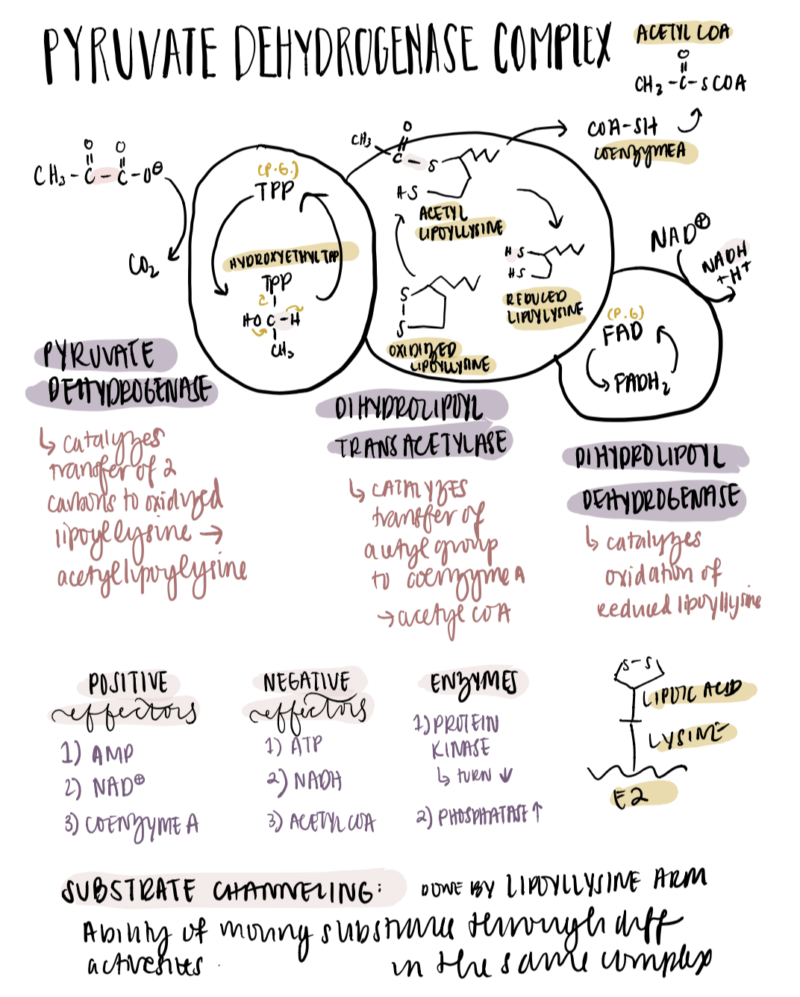 PYRUVATE DEHYDROGENASE COMPLEX
ACETYL COA
O
CH₂-C-SCOA
COA-SH
COENZYME A
O O
CH₃-C-C-O⊖
CO₂
(P.G.)
TPP
HYDROXYETHYL TPP
TPP
C
HO C-H
CH₃
O
CH₃ C-S
HS
ACETYL
LIPOYLLYSINE
HS
HS
REDUCED
LIPOYLYSINE
S
S
OXIDIZED
LIPOYLLYSINE
NAD⊕
NADH
+H+
(P.G)
FAD
FADH₂
PYRUVATE
DEHYDROGENASE
↳ catalyzes
transfer of 2
carbons to oxidized
lipoyllysine →
acetyllipoyllysine
DIHYDROLIPOYL
TRANSACETYLASE
↳ CATALYZES
transfer of
acetyl group
to coenzyme A
→ acetyl COA
DIHYDROLIPOYL
DEHYDROGENASE
↳ catalyzes
oxidation of
reduced lipoyllysine
POSITIVE
effectors
1) AMP
2) NAD⊕
3) COENZYME A
NEGATIVE
effectors
1) ATP
2) NADH
3) ACETYL COA
ENZYMES
1) PROTEIN
KINASE
↳ TURN ↓
2) PHOSPHATASE ↑
S-S
LIPOIC ACID
LYSINE
E2
SUBSTRATE CHANNELING: DONE BY LIPOYLLYSINE ARM
Ability of moving substrate through diff
activesites in the same complex